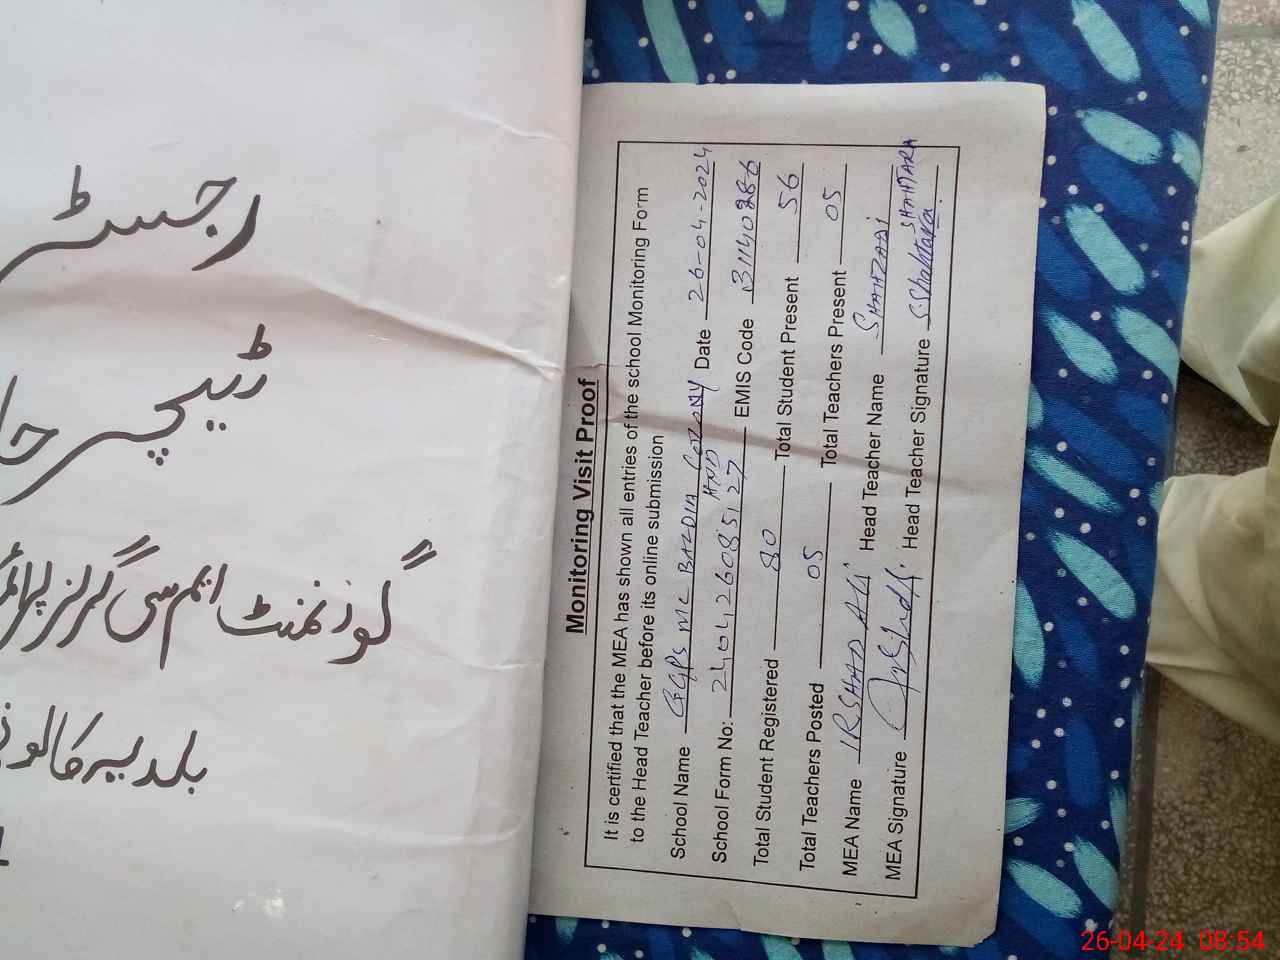 رجسٹر
ٹیچر
گورنمنٹ ایم سی گرلز
بلدیہ کالونی
Monitoring Visit Proof
It is certified that the MEA has shown all entries of the school Monitoring Form
to the Head Teacher before its online submission
School Name GGPS MC BALDIA COLONY Date 26-04-2024
HND
School Form No: 240426085127 EMIS Code 31140286
Total Student Registered 80 Total Student Present 56
Total Teachers Posted 05 Total Teachers Present 05
MEA Name IRSHAD ALI Head Teacher Name SHAHZADI
SHAHTARA
MEA Signature Head Teacher Signature S.Shahtara.
26-04-24 08:54